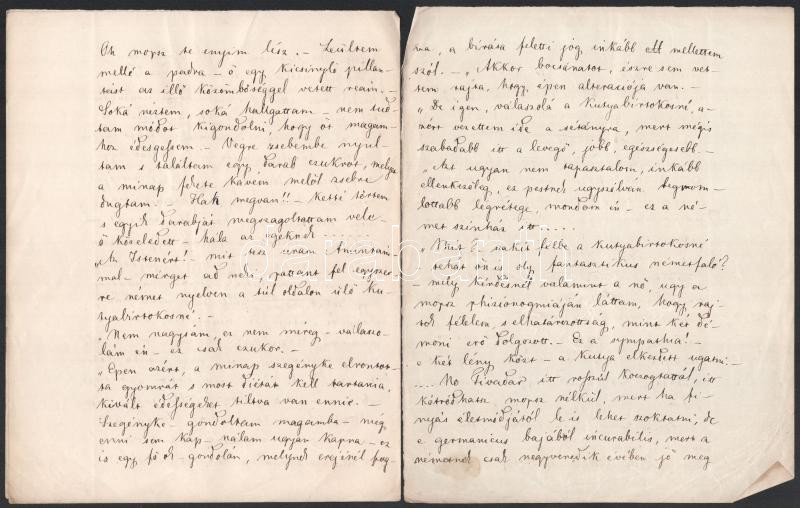 Oh mopsz te enyém lész. – Leültem
mellé a padra – ő egy kicsinylő pillan-
tást az illő közömbösséggel vetett reám. –
Soká néztem, soká hallgattam – nem tud-
tam módot kigondolni, hogy őt magam-
hoz édesgessem. – Végre zsebembe nyul-
tam s találtam egy darab czukrot, melyet
a minap fekete kávém mellől zsebre
dugtam. – Hah megvan!! – Ketté törtem
s egyik darabját megszagoltattam vele
ő közeledett – hála az egeknek ........
„Az Istenért! – mit tesz uram Amintám-
nak – mérget ad neki, pattant fel egyszer-
re német nyelven a túl oldalon ülő ku-
tyabirtokosné. –
„Nem nagysám, ez nem méreg – válaszo-
lám én – ez csak czukor. –
„Épen azért, a minap szegényke elrontot-
ta gyomrát s most diétát kell tartania,
kivált édességeket tiltva van ennie. –
Szegényke – gondoltam magamba – még
enni sem kap – nálam ugyan kapna – ez
is egy fő ok – gondolám, melynek erejénél fog-
va, a birása feletti jog, inkább mellettem
szól. – „Akkor bocsánatot, észre sem vet-
tem rajta, hogy épen alteratiója van. –
„De igen, válaszolá a Kutyabirtokosné, a-
zért vezettem ide a sétányra, mert mégis
szabadabb itt a levegő, jobb, egészségesebb –
„Azt ugyan nem tapasztalom, inkább
ellenkezőleg, ez pestnek ugyszólván legrom-
lottabb legrétege, mondám én – ez a né-
met szinház itt ....
„Mit? vakít félbe a kutyabirtokosné
tehát ön is oly fantasztikus németfaló?
– mely kérdésnél valamint a nő, ugy a
mopsz phizionogmiáján láttam, hogy raj-
tok félelem, s elhatározottság, mint két dé-
moni erő dolgozott. – Ez a sympathia! –
e két lény közt – a kutya elkezdett ugatni. –
.... No Tivadar itt rosszúl kockoztattál, itt
kótródhatsz mopsz nélkül, mert ha fi-
nyás életmódjától le is lehet szoktatni, de
e germanicus bajából incurabilis, mert a
németnek csak negyvenedik évében jő meg